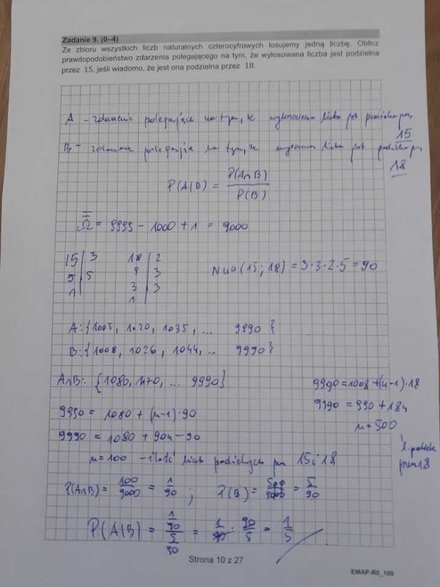 Zadanie 9. (0–4)
Ze zbioru wszystkich liczb naturalnych czterocyfrowych losujemy jedną liczbę. Oblicz
prawdopodobieństwo zdarzenia polegającego na tym, że wylosowana liczba jest podzielna
przez 15, jeśli wiadomo, że jest ona podzielna przez 18.
A – zdarzenie polegające na tym, że wylosowana liczba jest podzielna przez
15
B – zdarzenie polegające na tym, że wylosowana liczba jest podzielna przez
18
P(A|B) = P(A∩B) / P(B)
Ω = 9999 – 1000 + 1 = 9000
15 | 3 18 | 2
5 | 5 9 | 3
1 3 | 3
1
NWW (15; 18) = 3·3·2·5 = 90
A: {1005, 1020, 1035, ... 9990}
B: {1008, 1026, 1044, ... 9990}
A∩B: {1080, 1170, ... 9990}
9990 = 1008 + (n-1)·18
9990 = 990 + 18n
n = 500
9990 = 1080 + (n-1)·90
9990 = 1080 + 90n – 90
n = 100 – ilość liczb podzielnych przez 15 i 18
przez 18
P(A∩B) = 100/9000 = 1/90 ; P(B) = 500/9000 = 5/90
P(A|B) = 1/90 / 5/90 = 1/90 · 90/5 = 1/5
Strona 10 z 27
EMAP-R0_100